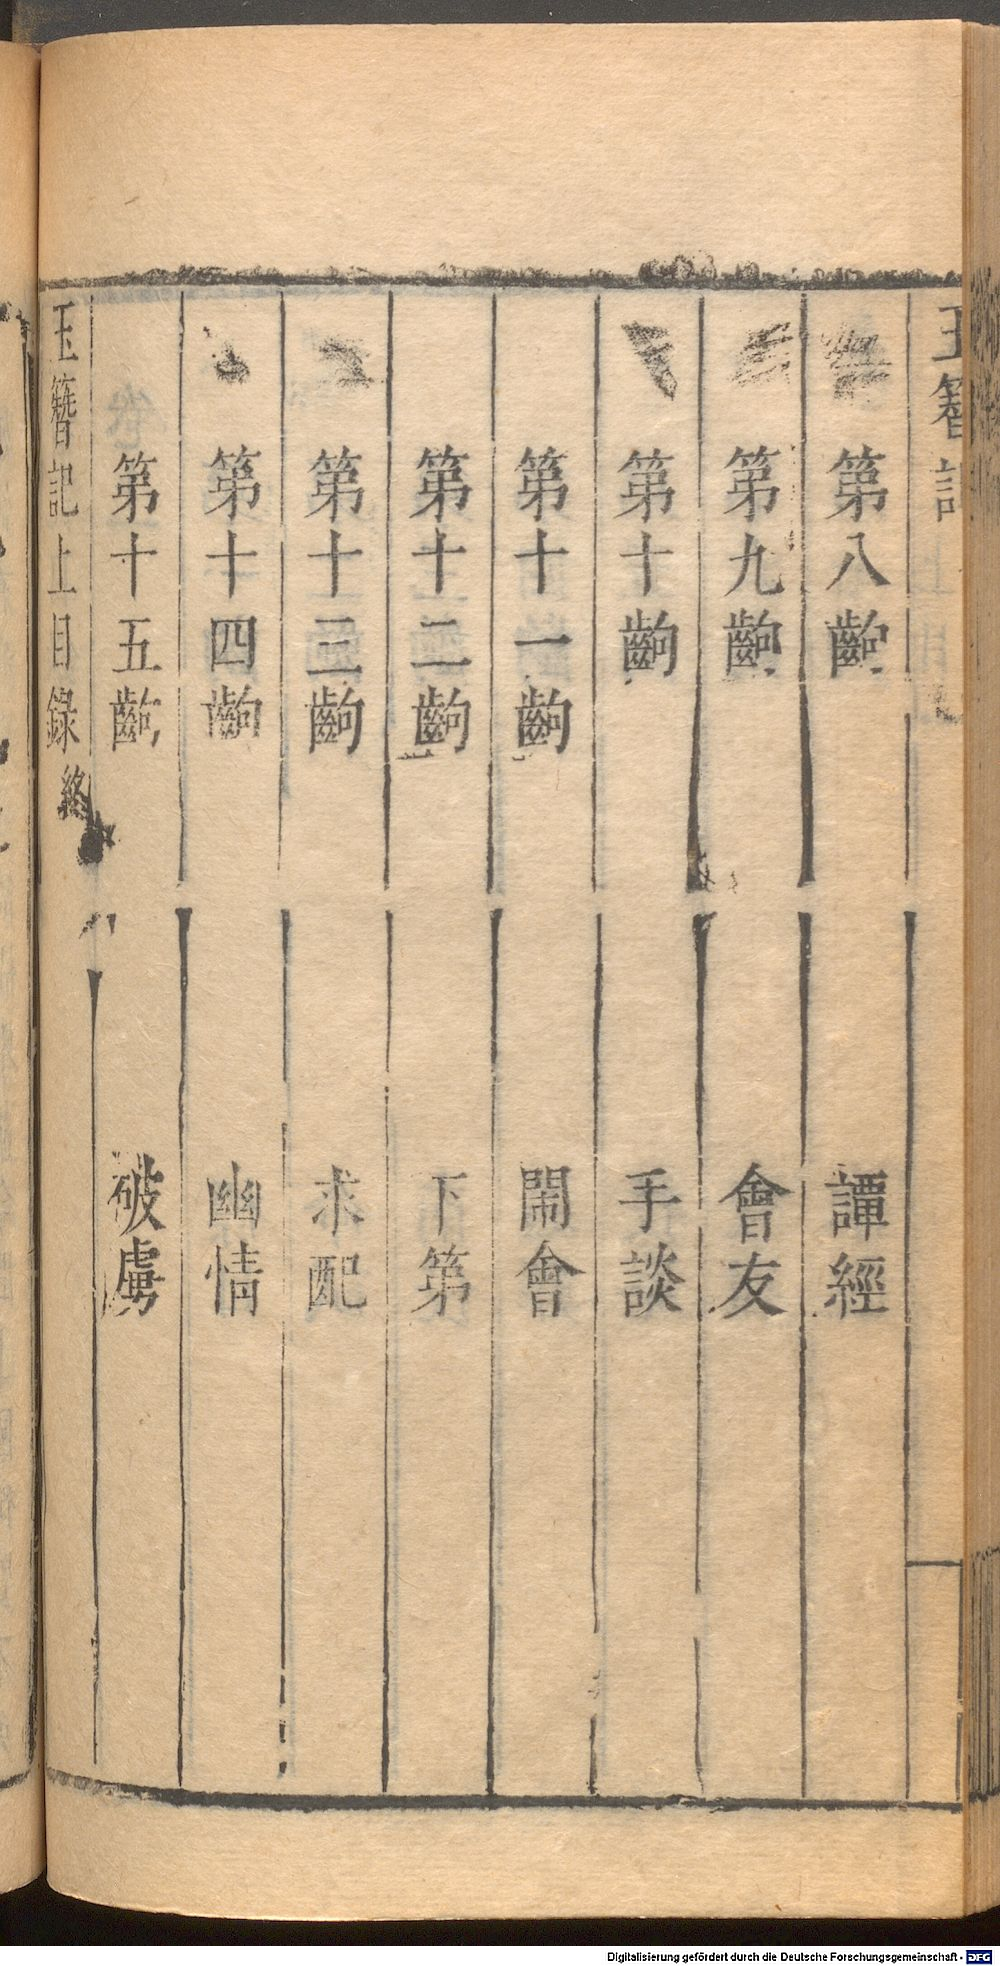 第八齣 譚經
第九齣 會友
第十齣 手談
第十一齣 鬧會
第十二齣 下第
第十三齣 求配
第十四齣 幽情
第十五齣 破虜
玉簪記上目錄終
Digitalisierung gefördert durch die Deutsche Forschungsgemeinschaft - DFG